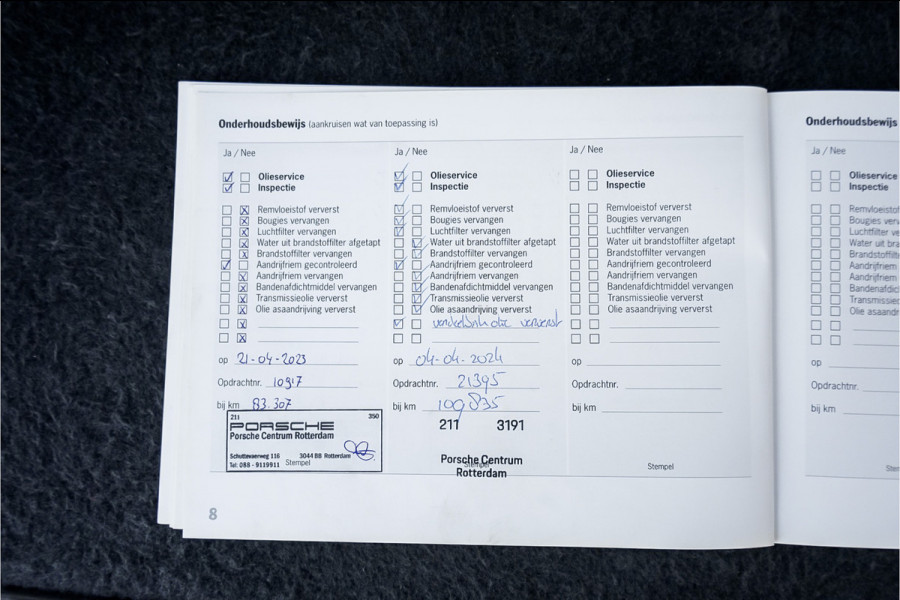 Onderhoudsbewijs (aankruisen wat van toepassing is)
Ja / Nee
Olieservice
Inspectie
Remvloeistof ververst
Bougies vervangen
Luchtfilter vervangen
Water uit brandstoffilter afgetapt
Brandstoffilter vervangen
Aandrijfriem gecontroleerd
Aandrijfriem vervangen
Bandenafdichtmiddel vervangen
Transmissieolie ververst
Olie asaandrijving ververst
op 21-04-2023
Opdrachtnr. 10917
bij km 83.307
211 350
PORSCHE
Porsche Centrum Rotterdam
Schuttevaerweg 116 3044 BB Rotterdam
Tel: 088 - 9119911 Stempel
Ja / Nee
Olieservice
Inspectie
Remvloeistof ververst
Bougies vervangen
Luchtfilter vervangen
Water uit brandstoffilter afgetapt
Brandstoffilter vervangen
Aandrijfriem gecontroleerd
Aandrijfriem vervangen
Bandenafdichtmiddel vervangen
Transmissieolie ververst
Olie asaandrijving ververst
ververst
op 04-04-2024
Opdrachtnr. 21395
bij km 109835
211 3191
Porsche Centrum
Stempel
Rotterdam
Ja / Nee
Olieservice
Inspectie
Remvloeistof ververst
Bougies vervangen
Luchtfilter vervangen
Water uit brandstoffilter afgetapt
Brandstoffilter vervangen
Aandrijfriem gecontroleerd
Aandrijfriem vervangen
Bandenafdichtmiddel vervangen
Transmissieolie ververst
Olie asaandrijving ververst
op
Opdrachtnr.
bij km
Stempel
8
Onderhoudsbewijs
Ja / Nee
Olieservice
Inspectie
Remvloeistof
Bougies verv
Luchtfilter ve
Water uit bra
Brandstoffilte
Aandrijfriem
Aandrijfriem
Bandenafdic
Transmissie
Olie asaandr
op
Opdrachtnr.
bij km
Ste